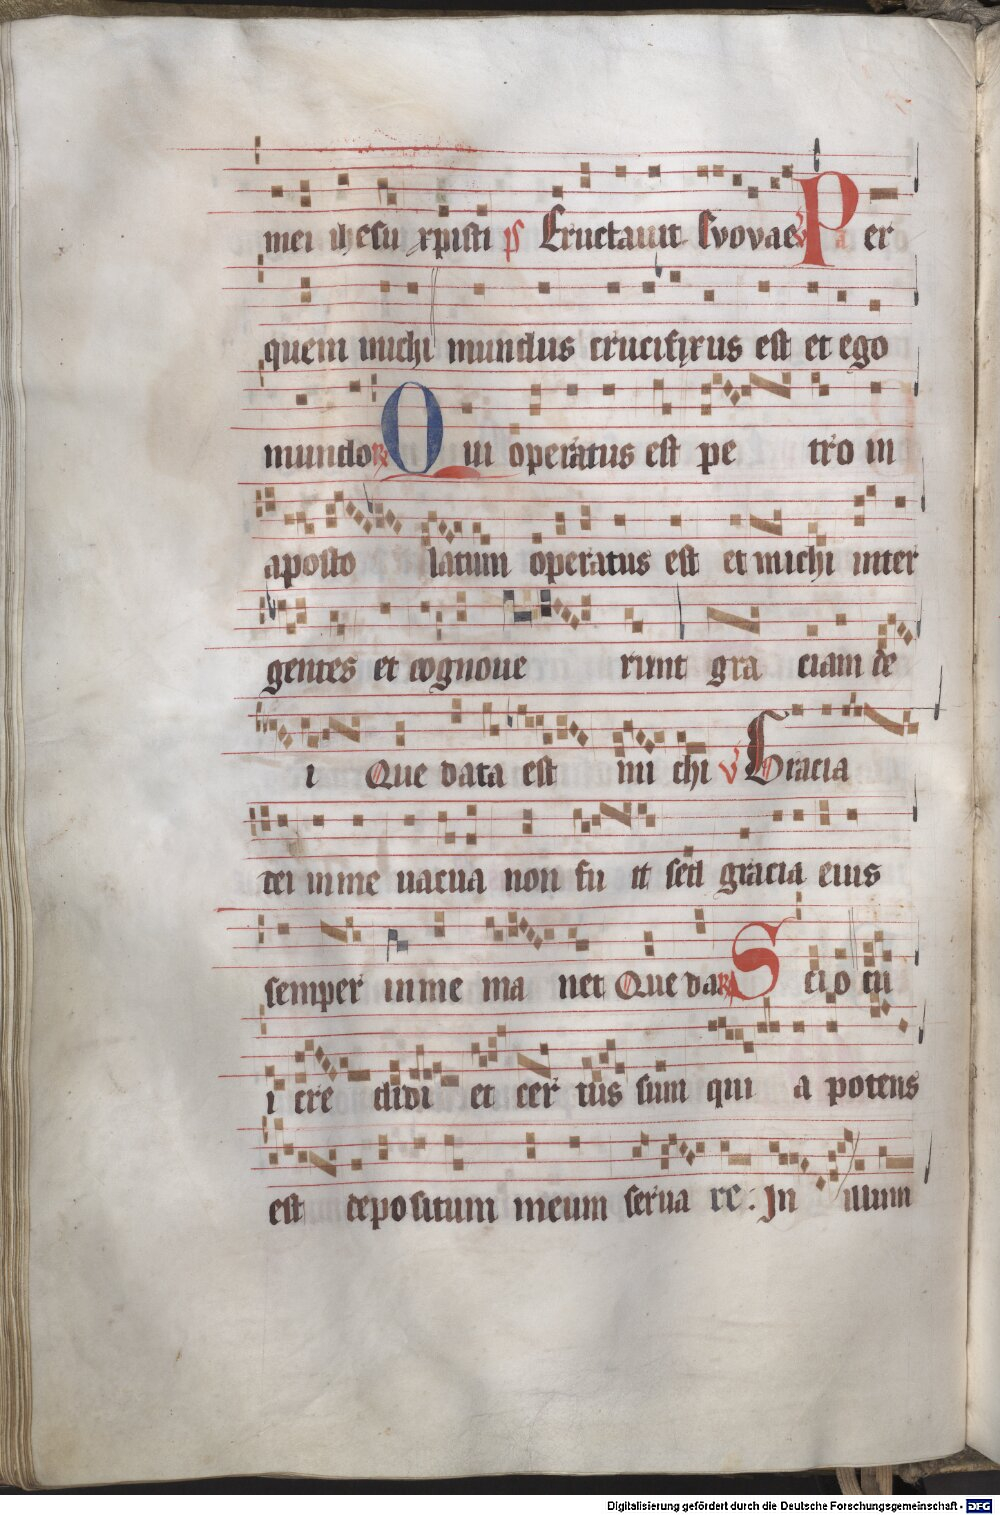 mei ihesu xpisti ps Eructauit Svovae v Per
quem michi mundus crucifixus est et ego
mundo R Qui operatus est pe tro in
aposto latum operatus est et michi inter
gentes et cognoue runt gra ciam de
i Que data est mi chi v Gracia
dei in me uacua non fu it sed gracia eius
semper in me ma net Que da R Scio cu
i cre didi et cer tus sum qui a potens
est depositum meum serua re. In illum
Digitalisierung gefördert durch die Deutsche Forschungsgemeinschaft - DFG